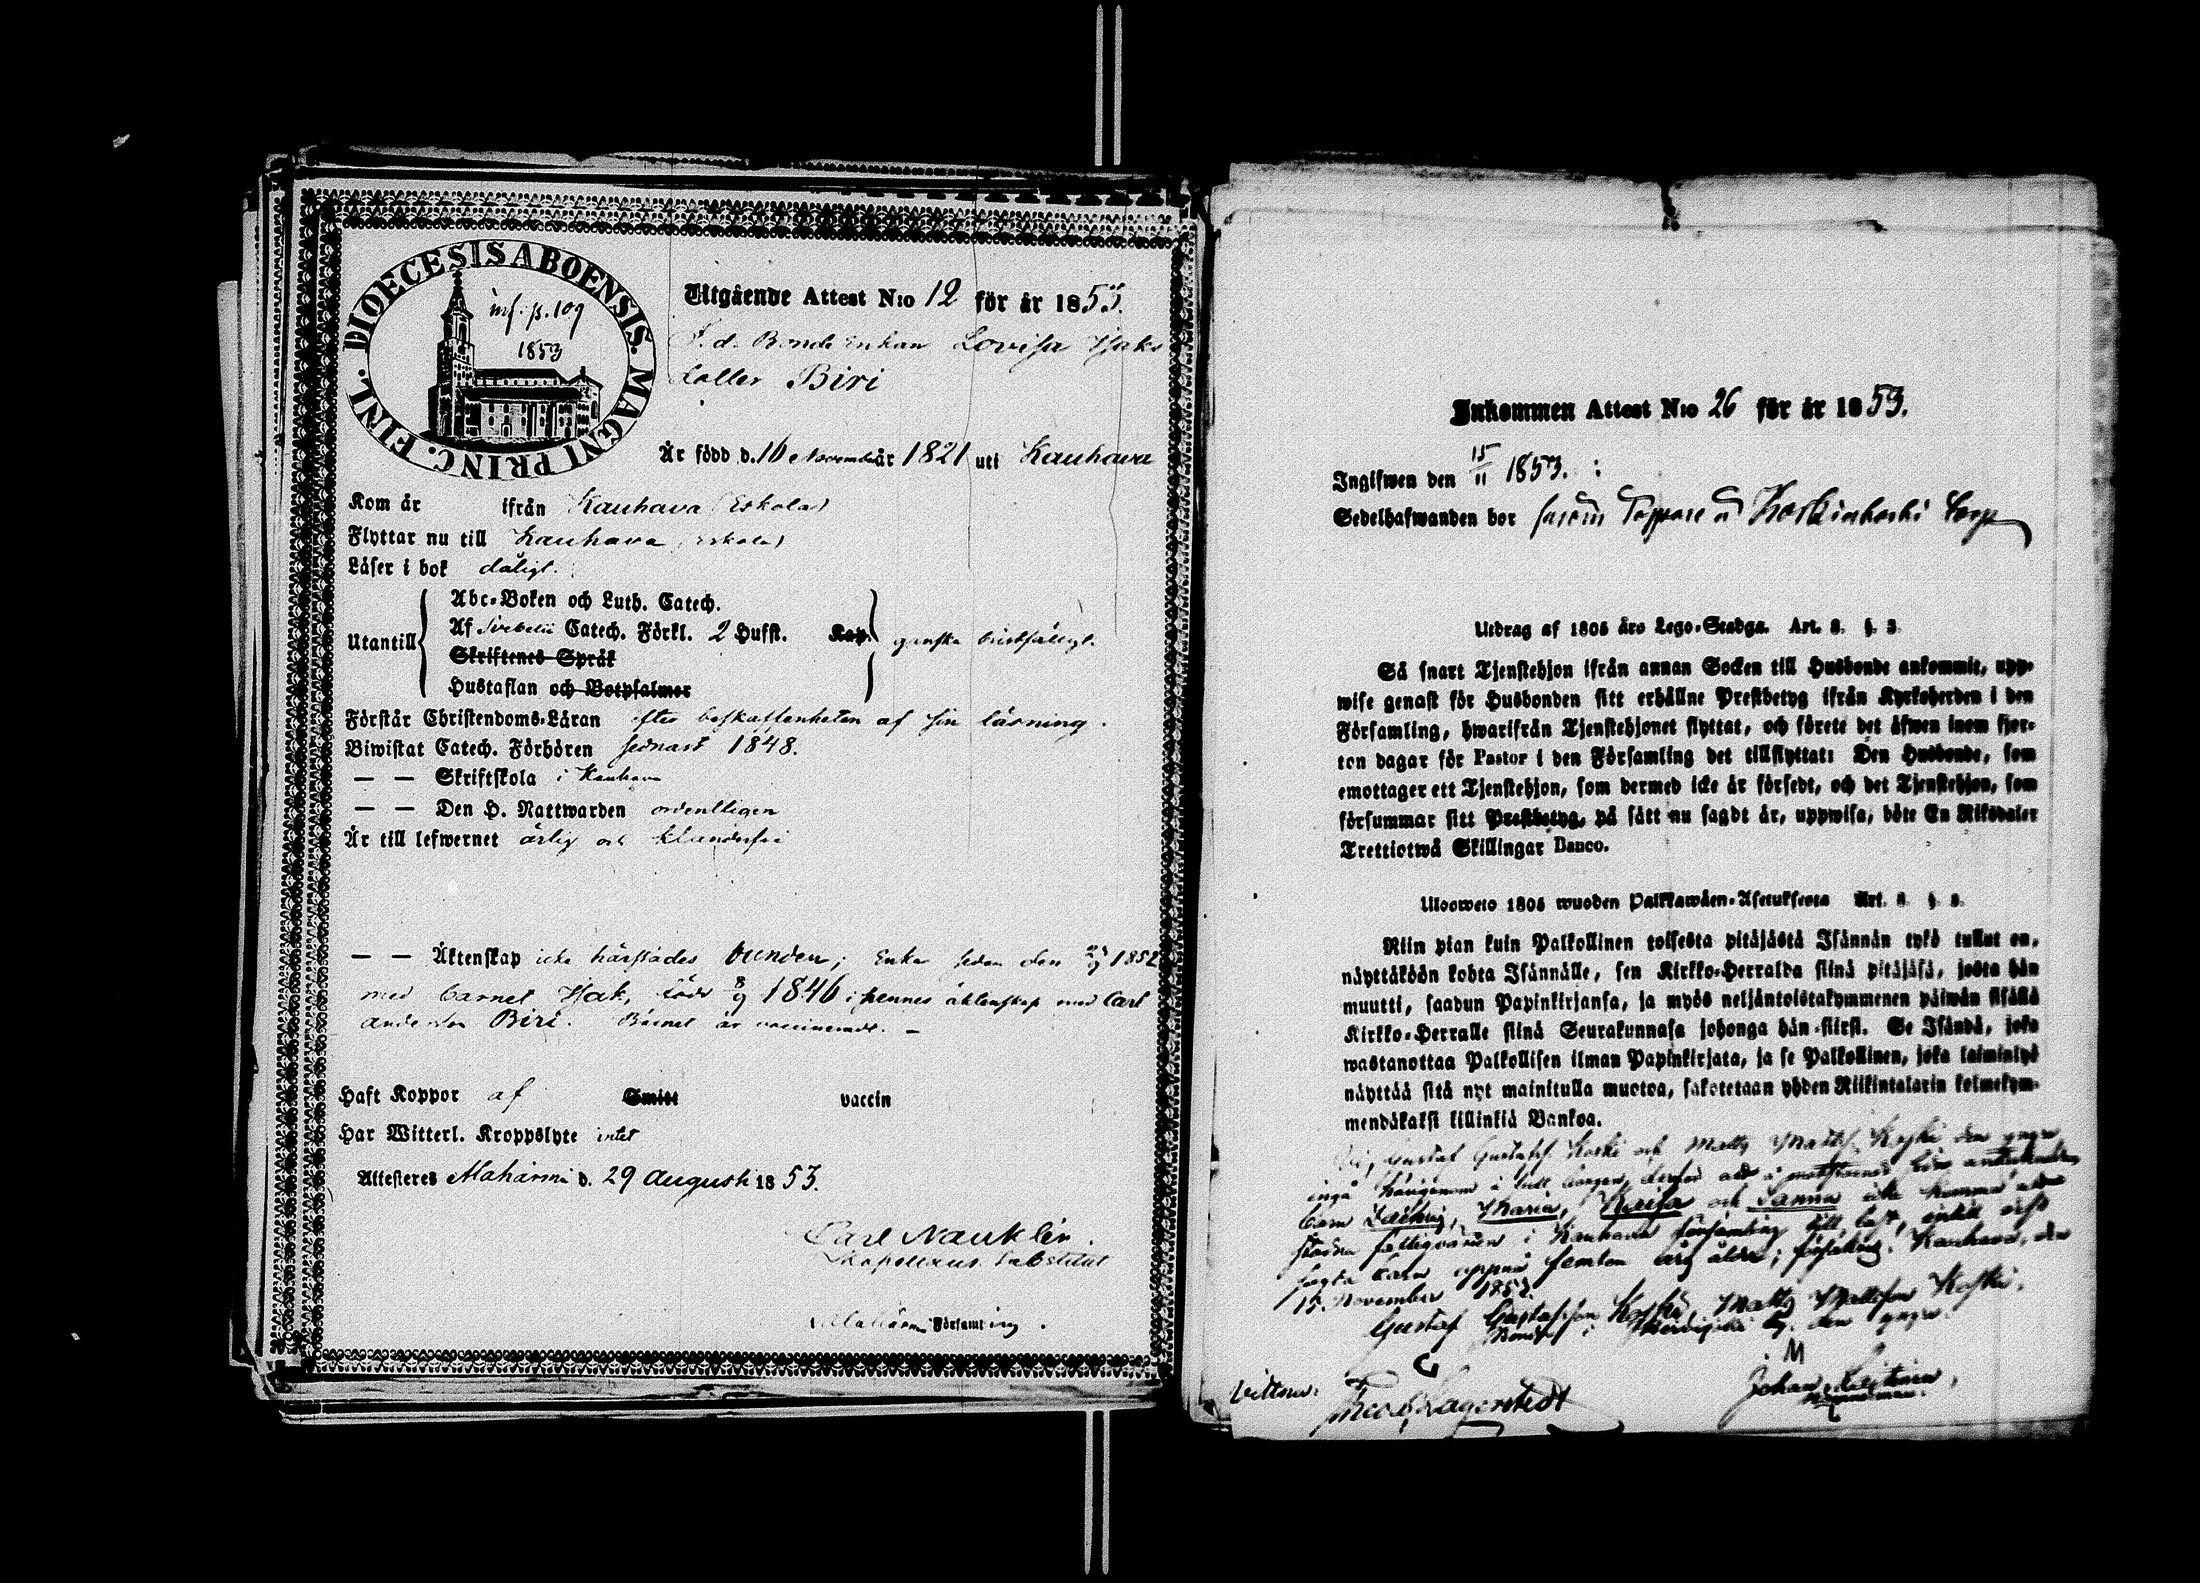 DIOECESIS ABOENSIS. MAGNI PRINC. FINL.
inf. p. 109
1853
Utgående Attest N:o 12 för år 1853.
F. d. Bonde Enkan Lovisa Isaks
dotter Biri
Är född d. 16 November år 1821 uti Kauhava
Kom år ifrån Kauhava (Eskola)
Flyttar nu till Kauhava (Eskola)
Läser i bok dåligt.
Utantill
Abc-Boken och Luth. Catech.
Af Svebelii Catech. Förkl. 2 Hufst. Kap.
Skriftenes Språk
Hustaflan och Botpsalmer
ganska bristfälligt.
Förstår Christendoms-Läran efter beskaffenheten af sin läsning.
Biwistat Catech. Förhören sednast 1848.
— — Skriftskola i Kauhava
— — Den H. Nattwarden ordentligen
Är till lefwernet ärlig och klanderfri
— — Äktenskap icke härstädes bunden; Enka sedan den 1852
med barnet Isak, född 8/9 1846 i hennes äktenskap med Carl
Andersson Biri. Barnet är vaccineradt. —
Haft Koppor af Smitt vaccin
Har Witterl. Kroppslyte intet
Attesteres Alahärmä d. 29 Augusti 1853.
Carl Nauklér.
Kapellans Substitut
Alahärmä Församling.
Inkommen Attest N:o 26 för år 1853.
Ingifwen den 15/11 1853.
Sedelhafwanden bor såsom Koskinkoski
Utdrag af 1805 års Lego-Stadga. Art. 8. §. 3
Så snart Tjenstehjon ifrån annan Socken till Husbonde ankommit, upp-
wise genast för Husbonden sitt erhållne Prestbetyg ifrån Kyrkoherden i den
Församling, hwarifrån Tjenstehjonet flyttat, och förete det äfwen inom fjor-
ton dagar för Pastor i den Församling det tillflyttat: Den Husbonde, som
emottager ett Tjenstehjon, som dermed icke är försedt, och det Tjenstehjon, som
försummar sitt Prestbetyg, på sätt nu sagdt är, uppwisa, böte En Riksdaler
Trettiotwå Skillingar Banco.
Uloosweto 1805 wuoden Palkkawäen-Asetuksesta Art. 8 §. 3.
Niin pian kuin Palkollinen toisesta pitäjästä Isännän tykö tullut on,
näyttäköön kohta Isännälle, sen Kirkko-Herralda siinä pitäjäsä, josta hän
muutti, saadun Papinkirjansa, ja myös neljäntoistakymmenen päiwän sisällä
Kirkko-Herralle siinä Seurakunnasa johonga hän siirsi. Se Isändä, joka
wastanottaa Palkollisen ilman Papinkirjata, ja se Palkollinen, joka laiminlyö
näyttää sitä nyt mainitulla muotoa, sakotetaan yhden Riikintalarin kolmekym-
mendäkaksi killinkiä Bankoa.
Vi, Gustaf Gustafss. Koski och Matts Mattss. Koski den yngre
ingå härigenom i full borgen, derför att
barn Maria, Kaisa och Sanna icke komma att
fattigvården i Kauhava församling till last, intill dess
sagda barn uppnå femton års ålder; försäkras. Kauhava, den
15 November 1852.
Gustaf Gustafsson Koski, Matts Mattsson Koski,
den yngre
M
Vittna:
Lagerstedt
Johan